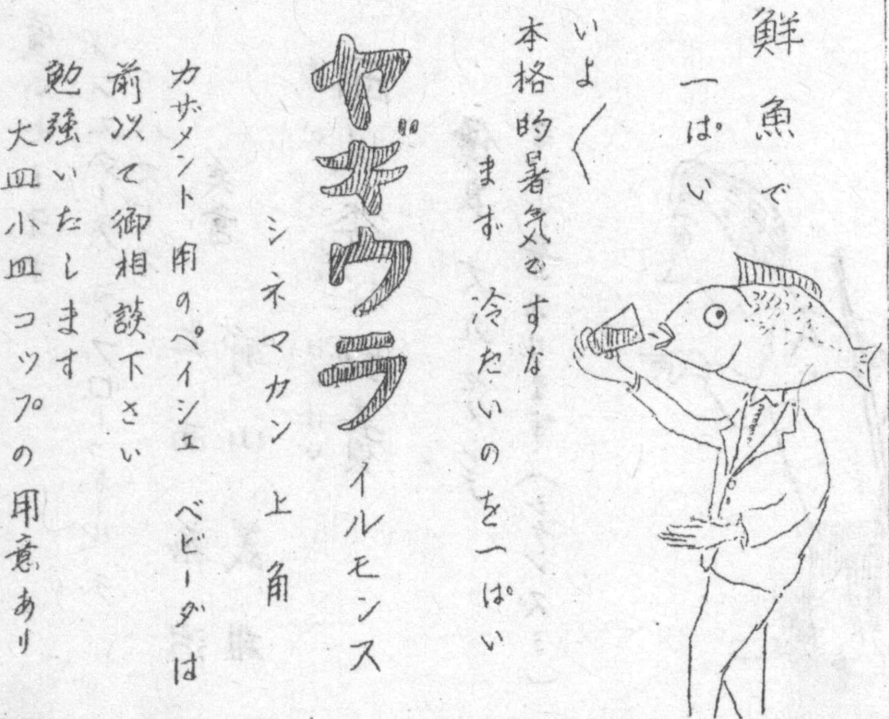 鮮魚で
一ぱい
いよ〱
本格的暑気ですな
まず 冷たいのを一ぱい
ヤギウラ イルモンス
シネマカン 上角
カザメント 用のペイシェ ベビーダは
前以て御相談下さい
勉強いたします
大皿小皿コップの用意あり